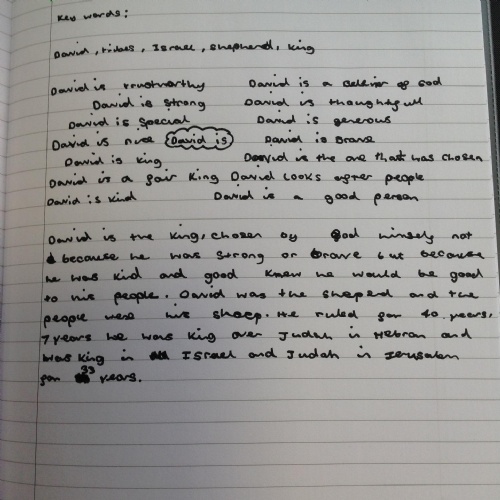 Key words:
David, tribes, Israel, shepherd, king
David is trustworthy David is a believer of God
David is strong David is thoughtful
David is special David is generous
David is nice David is David is brave
David is king David is the one that was chosen
David is a fair king David looks after people
David is kind David is a good person
David is the king, chosen by God himself not
because he was strong or brave but because
he was kind and good knew he would be good
to his people. David was the sheperd and the
people were his sheep. He ruled for 40 years,
7 years he was king over Judah in Hebron and
was king in Israel and Judah in Jerusalem
for 33 years.